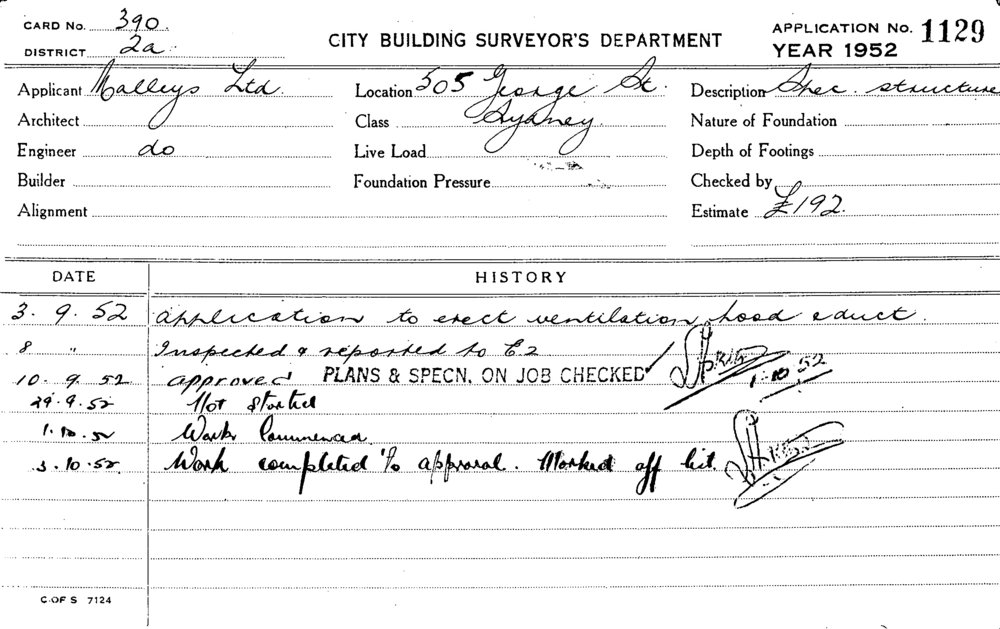 CARD No. 390.
DISTRICT 2a
CITY BUILDING SURVEYOR'S DEPARTMENT
APPLICATION No. 1129
YEAR 1952
Applicant Malleys Ltd. Location 505 George St. Description Spec. structure
Architect Class Sydney Nature of Foundation
Engineer do Live Load Depth of Footings
Builder Foundation Pressure Checked by
Alignment Estimate £192.
DATE HISTORY
3. 9. 52 application to erect ventilation hood & duct.
8 " Inspected & reported to C2
10. 9. 52 approved PLANS & SPECN. ON JOB CHECKED ✓ 1.10.52
29.9.52 Not started
1.10.52 Work Commenced
3.10.52 Work completed to approval. Marked off list.
C.OF S 7124